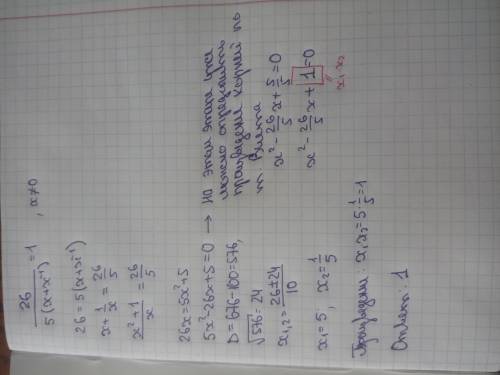 26 / 5(x+x⁻¹) = 1 , x≠0
26 = 5(x+x⁻¹)
x + 1/x = 26/5
x²+1 / x = 26/5
26x = 5x²+5
5x²-26x+5=0 → на этом этапе уже
можно определить
произведение корней по
т. Виета
D = 676-100=576,
√576 = 24
x₁,₂ = 26±24 / 10
x₁ = 5, x₂ = 1/5
x² - 26/5 x + 5/5 = 0
x² - 26/5 x + 1 = 0
x₁·x₂
Произведение: x₁x₂ = 5·1/5 = 1
Ответ: 1